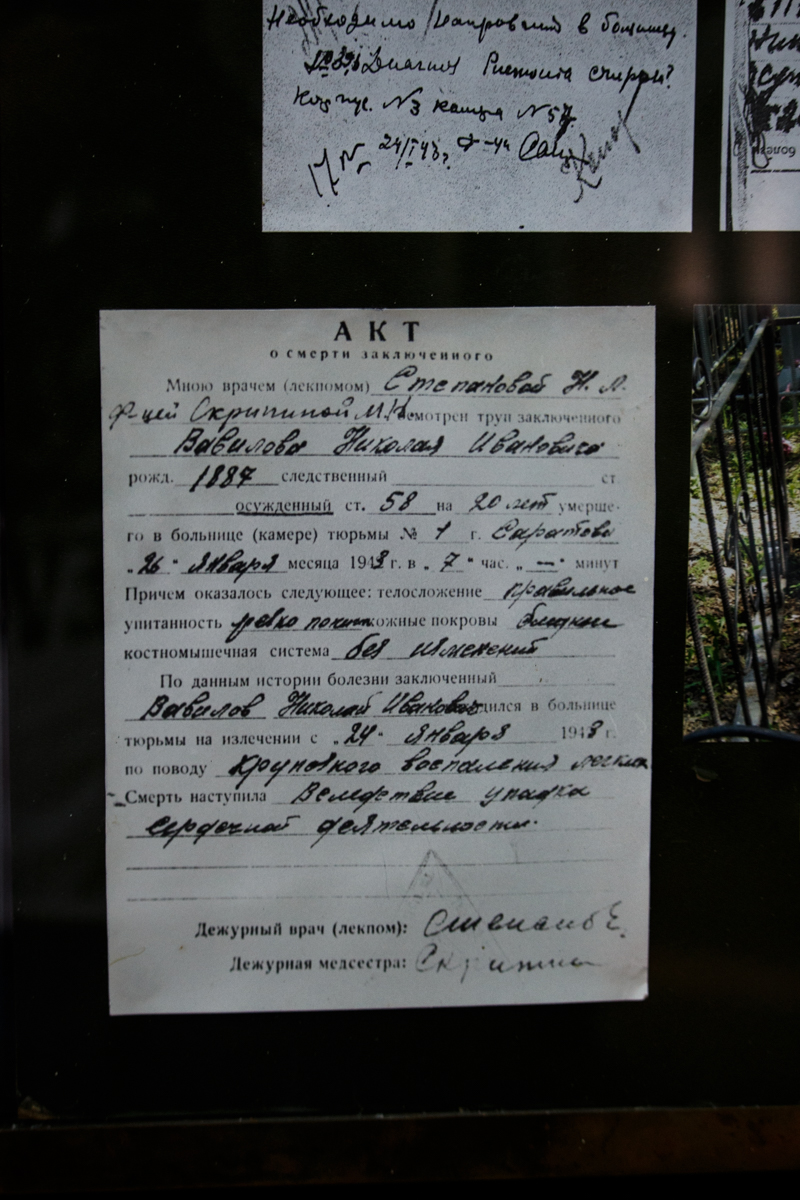 Необходимо направить в больницу.
Диагноз
Корпус №3 камера №57
24/I 43г.
АКТ
о смерти заключенного
Мною врачем (лекпомом) Степановой Н. Л.
Скрипиной М.Н. осмотрен труп заключенного
Вавилова Николая Ивановича
рожд. 1887 следственный ст
осужденный ст. 58 на 20 лет умерше-
го в больнице (камере) тюрьмы № 1 г. Саратова
„26" января месяца 1943 г. в „ 7 " час. „ — " минут
Причем оказалось следующее: телосложение правильное
упитанность резко пониж кожные покровы бледные
костномышечная система без изменений
По данным истории болезни заключенный
Вавилов Николай Иванович дился в больнице
тюрьмы на излечении с „24" января 1943 г.
по поводу крупозного воспаления легких
Смерть наступила Вследствие упадка
сердечной деятельности.
Дежурный врач (лекпом): Степанова
Дежурная медсестра: Скрипина